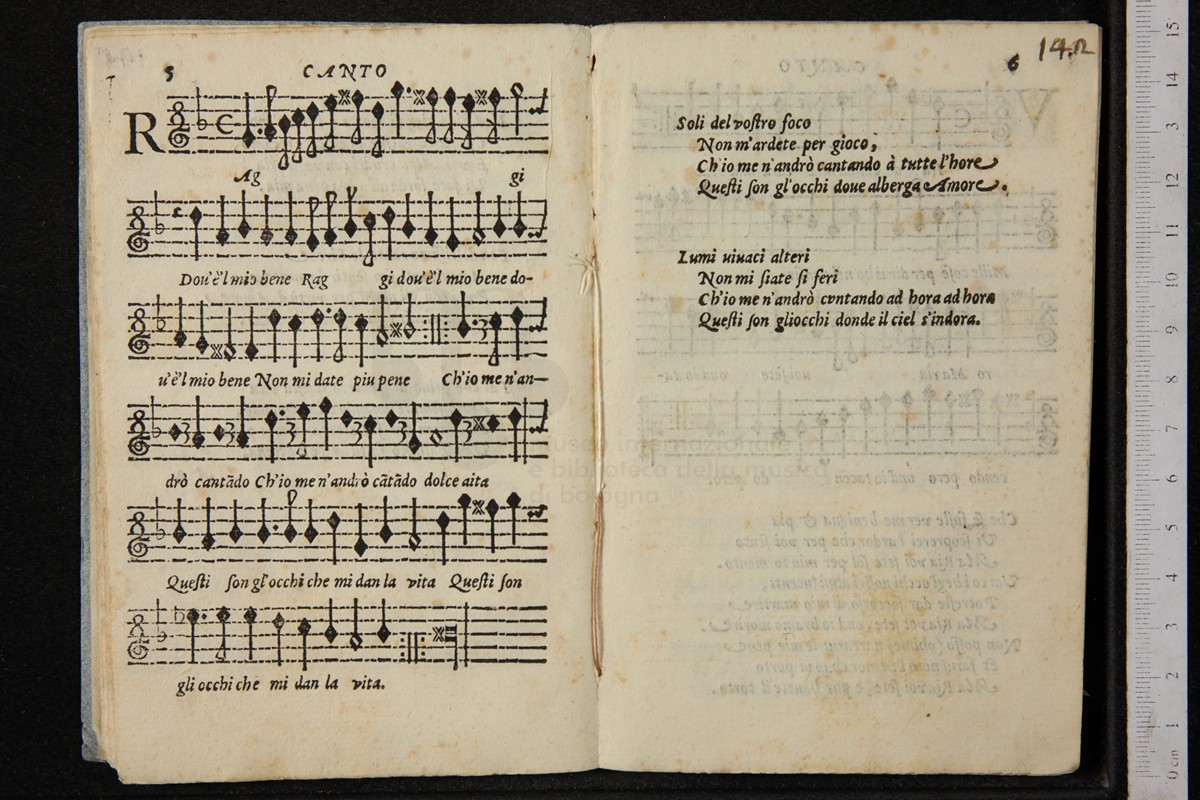 5
CANTO
R
Ag gi
Dou'è'l mio bene Rag gi dou'è'l mio bene do-
u'è'l mio bene Non mi date piu pene Ch'io me n'an-
drò cantãdo Ch'io me n'andrò cãtãdo dolce aita
Questi son gl'occhi che mi dan la vita Questi son
gli occhi che mi dan la vita.
6
14.
Soli del vostro foco
Non m'ardete per gioco,
Ch'io me n'andrò cantando à tutte l'hore
Questi son gl'occhi doue alberga Amore.
Lumi uiuaci alteri
Non mi siate si feri
Ch'io me n'andrò cvntando ad hora ad hora
Questi son gliocchi donde il ciel s'indora.
museo internazionale
e biblioteca della musica
di bologna
0 cm 1 2 3 4 5 6 7 8 9 10 11 12 13 14 15